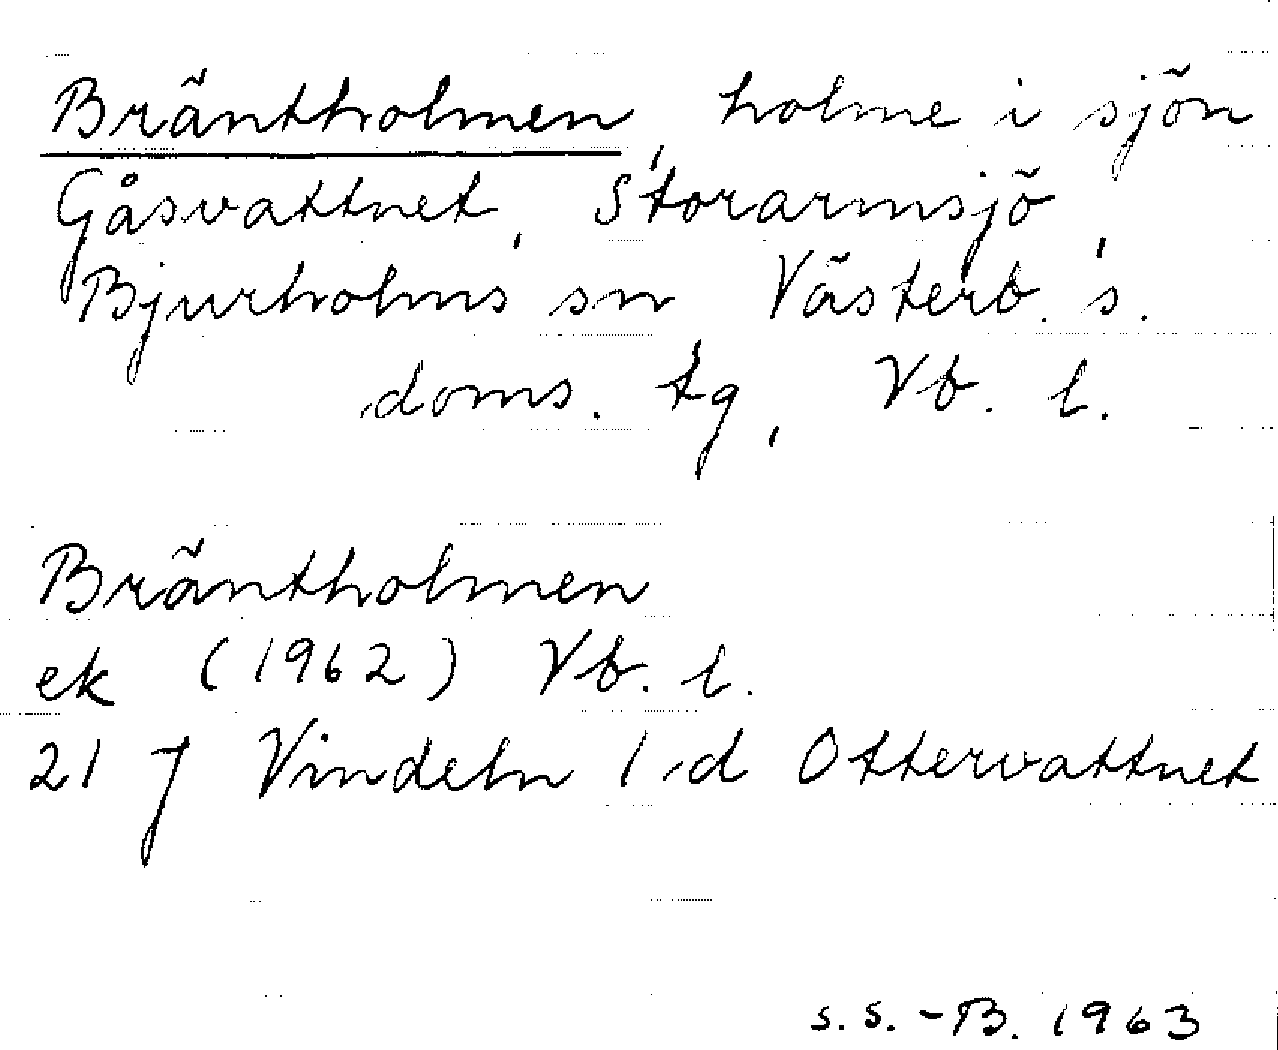 Bräntholmen, holme i sjön
Gåsvattnet, Storarmsjö,
Bjurholms sn, Västerb. s.
doms. tg, Vb. l.
Bräntholmen
ek (1962) Vb. l.
21 J Vindeln 1 d Ottervattnet
s. s. - B. 1963